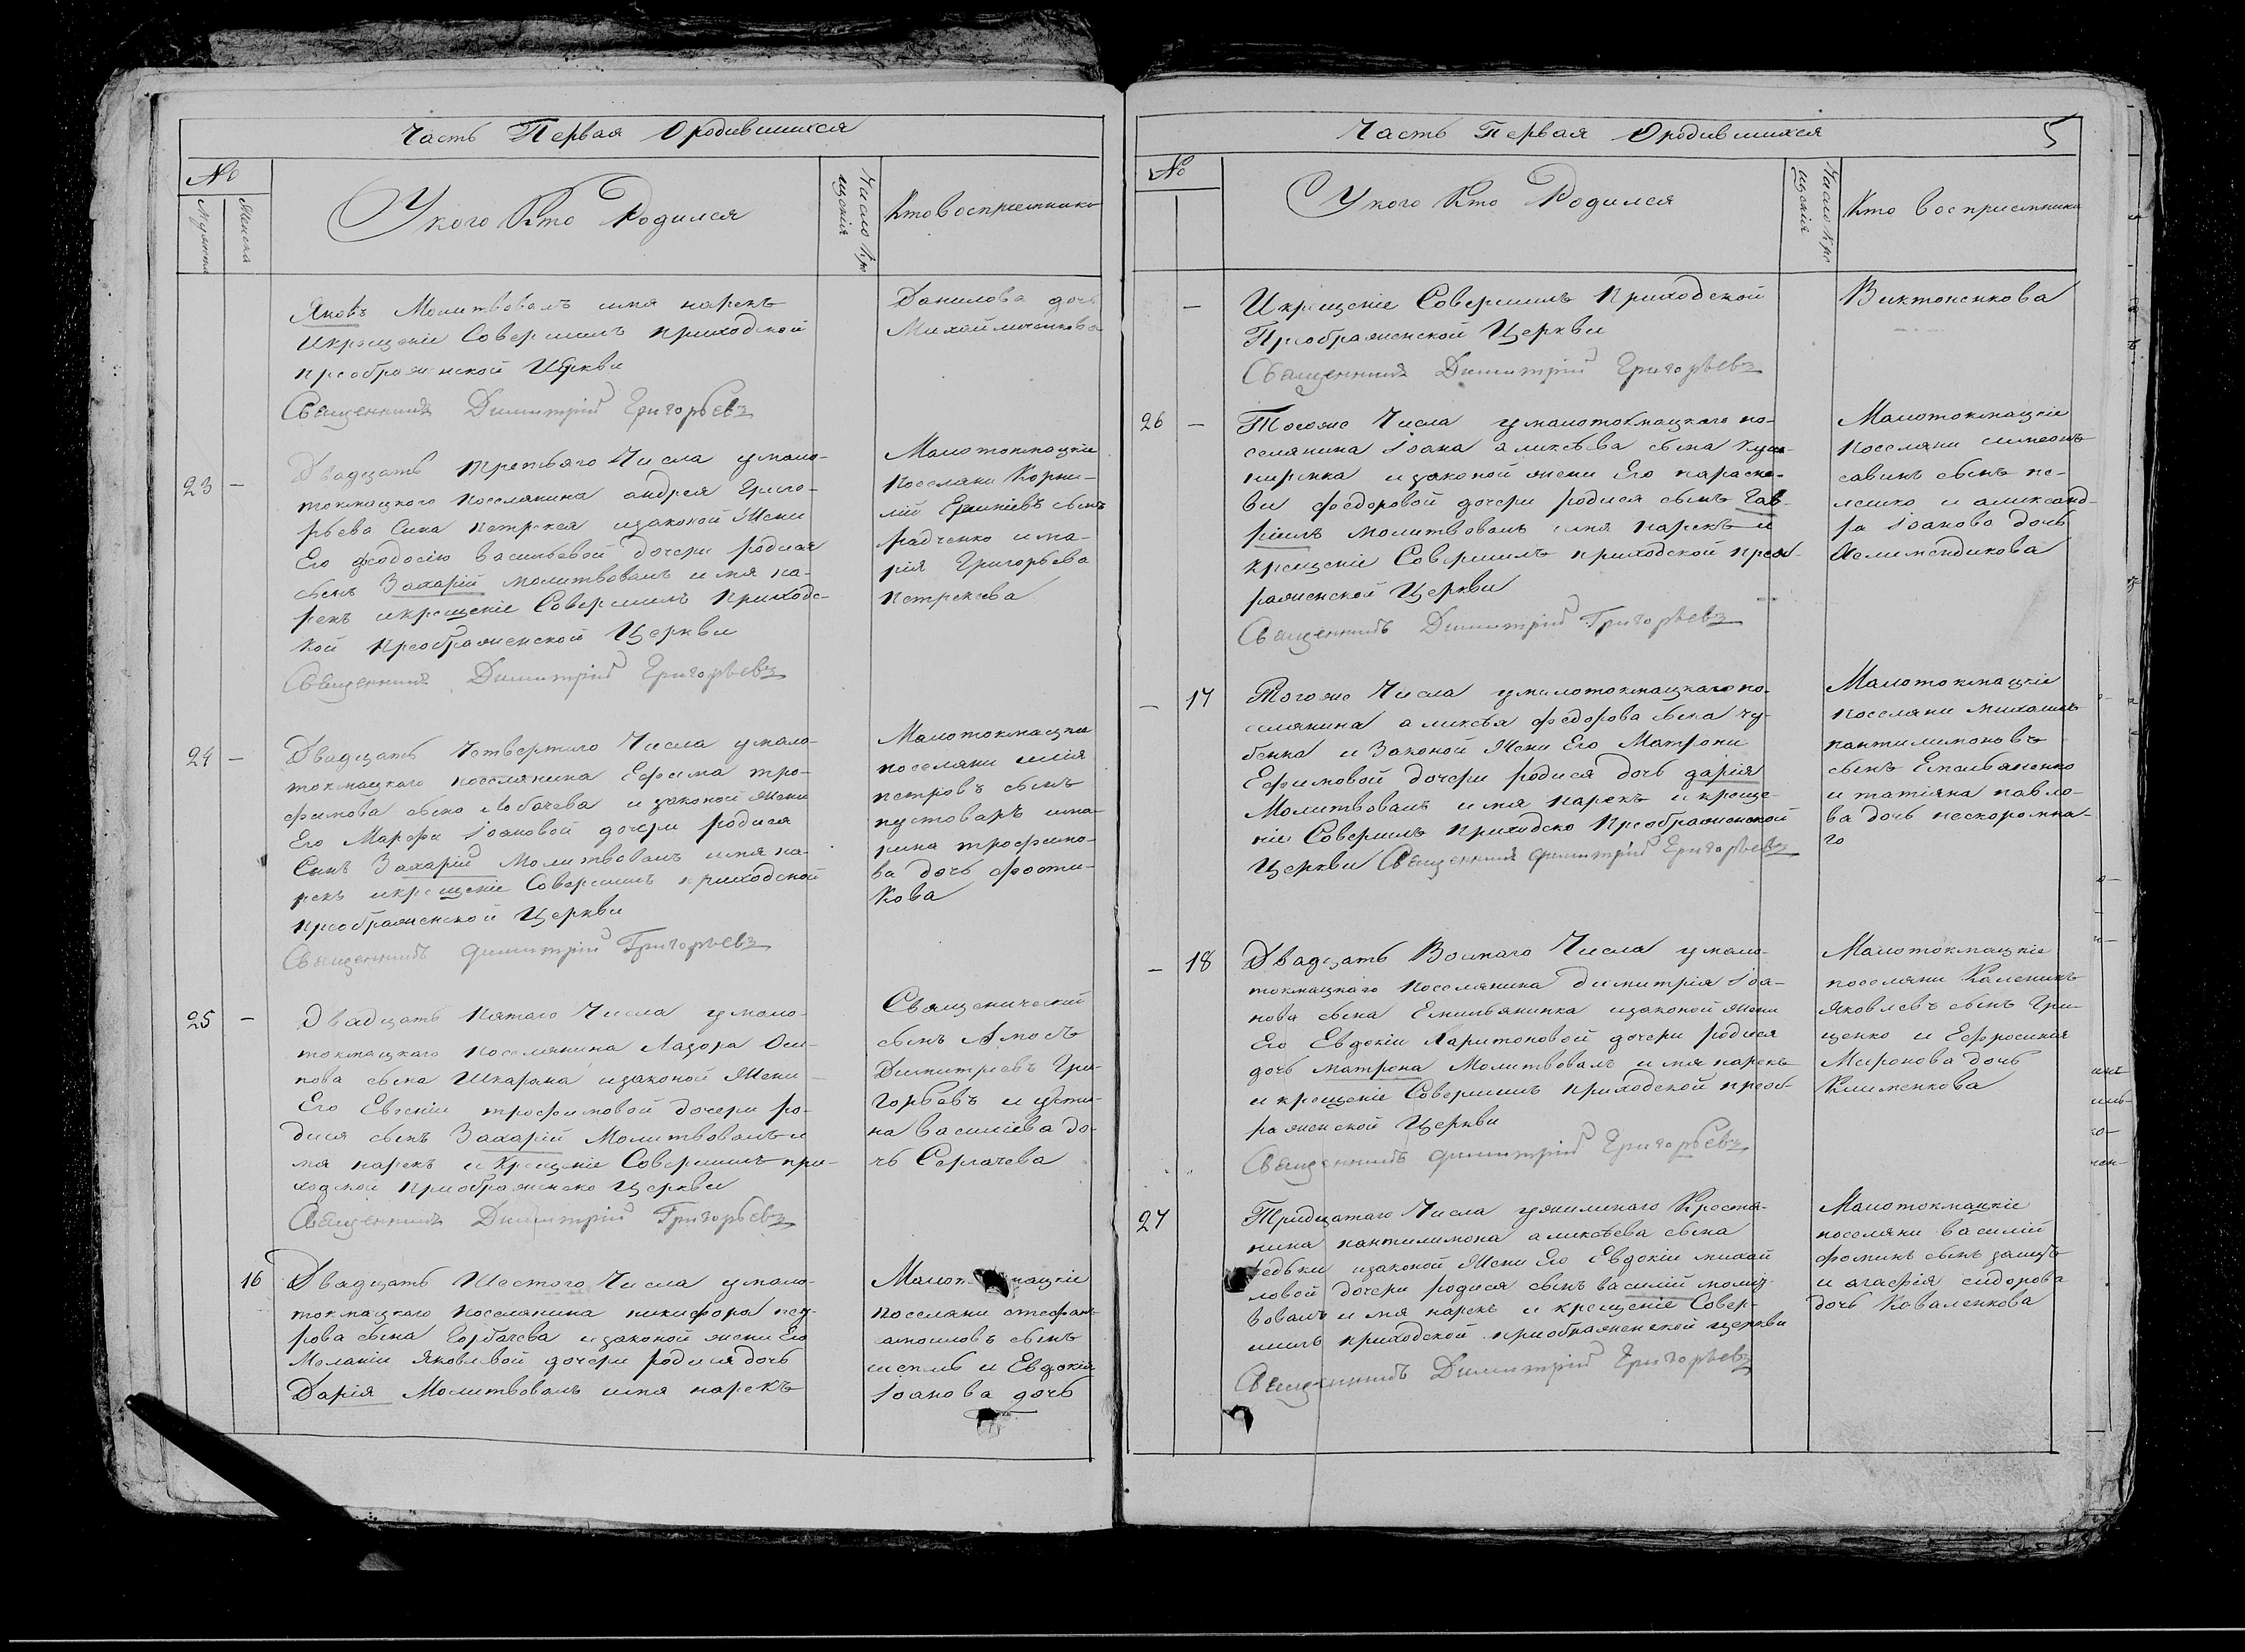 Часть Первая Ородившихся
№
Мужеска
Женска
Укого Кто Родился
Число Кре
щения
Кто восприемники
Яковъ Молитвовалъ имя нарекъ
Икрещеніе Совершилъ приходской
преображенской Церкви
Священникъ Димитрій Григорьевъ
Данилова дочь
Михайличенкова
23 —
Двадцать третьяго Числа умало-
токмацкого поселянина андрея Григо-
рьева Сина петрекея изаконой Жени
Его феодосію васильевой дочери родися
сынъ Захарій молитвовалъ имя на-
рекъ икрещеніе Совершилъ приходс-
кой преображенской Церкви
Священникъ Димитрій Григорьевъ
Малотокмацкіе
поселяни Корни-
лій сынъ
радченко има-
рія Григорьева
петрекева
24 —
Двадцать Четвертого Числа умало-
токмацкаго поселянина Ефима тро-
фимова сына Лобачева и законой Жени
Его Марфи Іоановой дочери родися
Сынъ Захарій Молитвовалъ имя на-
рекъ икрещеніе Совершилъ приходской
преображенской Церкви
Священникъ Димитрій Григорьевъ
Малотокмацкіе
поселяни илія
петровъ сынъ
пустоваръ има-
рина трофимо-
ва дочь фоти-
кова
25 —
Двадцать пятаго Числа умало-
токмацкаго поселянина Лазора Оси-
пова сына Шкарана изаконой Жени
Его Евгеніи трофимовой дочери ро-
дися сынъ Захарій Молитвовалъ и-
мя нарекъ и Крещеніе Совершилъ при-
ходской преображенско Церкви
Священникъ Димитрій Григорьевъ
Священическій
сынъ Амосъ
Димитріевъ Гри-
горьевъ и усти-
на василіева до-
чь Серпачева
16
Двадцать Шестого Числа умало-
токмацкаго поселянина никифора пет-
рова сына Горбачева изаконой жени Его
Меланіи Яковлевой дочери родися дочь
Дарія Молитвовалъ имя нарекъ
поселяни стефанъ
самоиловъ сынъ
шепель и Евдокія
Іоанова дочь
Часть Первая Ородившихся
5
№
Укого Кто Родился
Число Кре
щенія
Кто восприемники
—
Икрещеніе Совершилъ приходской
Преображенской Церкви
Священникъ Димитрій Григорьевъ
Виктоненкова
26 —
Тогоже Числа умалотокмацкаго по-
селянина Іоана аликсѣева сына
изаконой жени Его параске-
ви феодоровой дочери родися сынъ Гав-
ріилъ молитвовалъ имя нарекъ и
крещеніе Совершилъ приходской преоб-
раженской Церкви
Священникъ Димитрій Григорьевъ
Малотокмацкіе
поселяни симеонъ
савинъ сынъ пе-
лешко и александ-
ра Іоанова дочь
— 17
Тогоже Числа умалотокмацкаго по-
селянина аликсѣя феодорова сына чу-
бенка и Законой Жени Его Матрони
Ефимовой дочери родися дочь дарія
Молитвовалъ имя нарекъ икреще-
ніе Совершилъ приходско преображенской
Церкви Священникъ димитрій Григорьевъ
Малотокмацкіе
поселяни михаилъ
пантилимоновъ
сынъ Емельяненко
и татіяна павло-
ва дочь нескоромна-
го
— 18
Двадцать Восмаго Числа умало-
токмацкаго поселянина димитрія Іоа-
нова сына Емильяненка изаконой жени
Его Евдокіи Харитоновой дочери родися
дочь матрона Молитвовалъ имя нарекъ
и крещеніе Совершилъ приходской преоб-
раженской Церкви
Священникъ димитрій Григорьевъ
Малотокмацкіе
поселяни Каленикъ
Яковлевъ сынъ Гри-
щенко и Ефросинія
Миронова дочь
Клименкова
27
Тридцатаго Числа Крестя-
нина пантилимона аликсѣева сына
изаконой Жени Его Евдокіи михай-
ловой дочери родися сынъ василій молит-
вовалъ имя нарекъ и крещеніе Совер-
шилъ приходской преображенской церкви
Священникъ Димитрій Григорьевъ
Малотокмацкіе
поселяни василій
фоминъ сынъ заицъ
и агафія сидорова
дочь Коваленкова